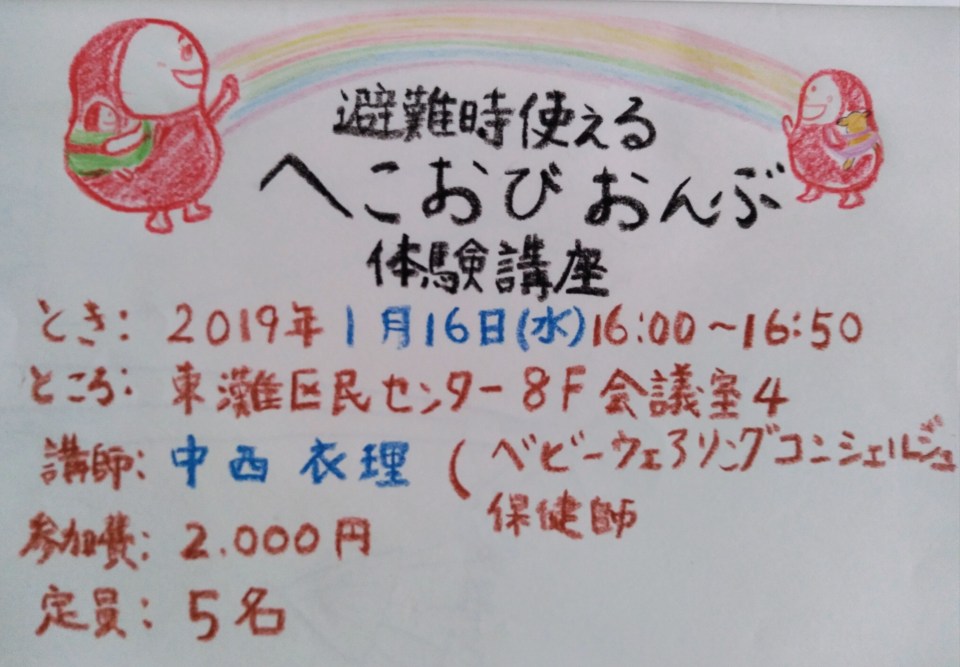 避難時使える
へこおび おんぶ
体験講座
とき: 2019年1月16日(水)16:00～16:50
ところ: 東灘区民センター8F会議室4
講師: 中西 衣理 (ベビーウェアリングコンシェルジュ
保健師
参加費: 2.000円
定員: 5名